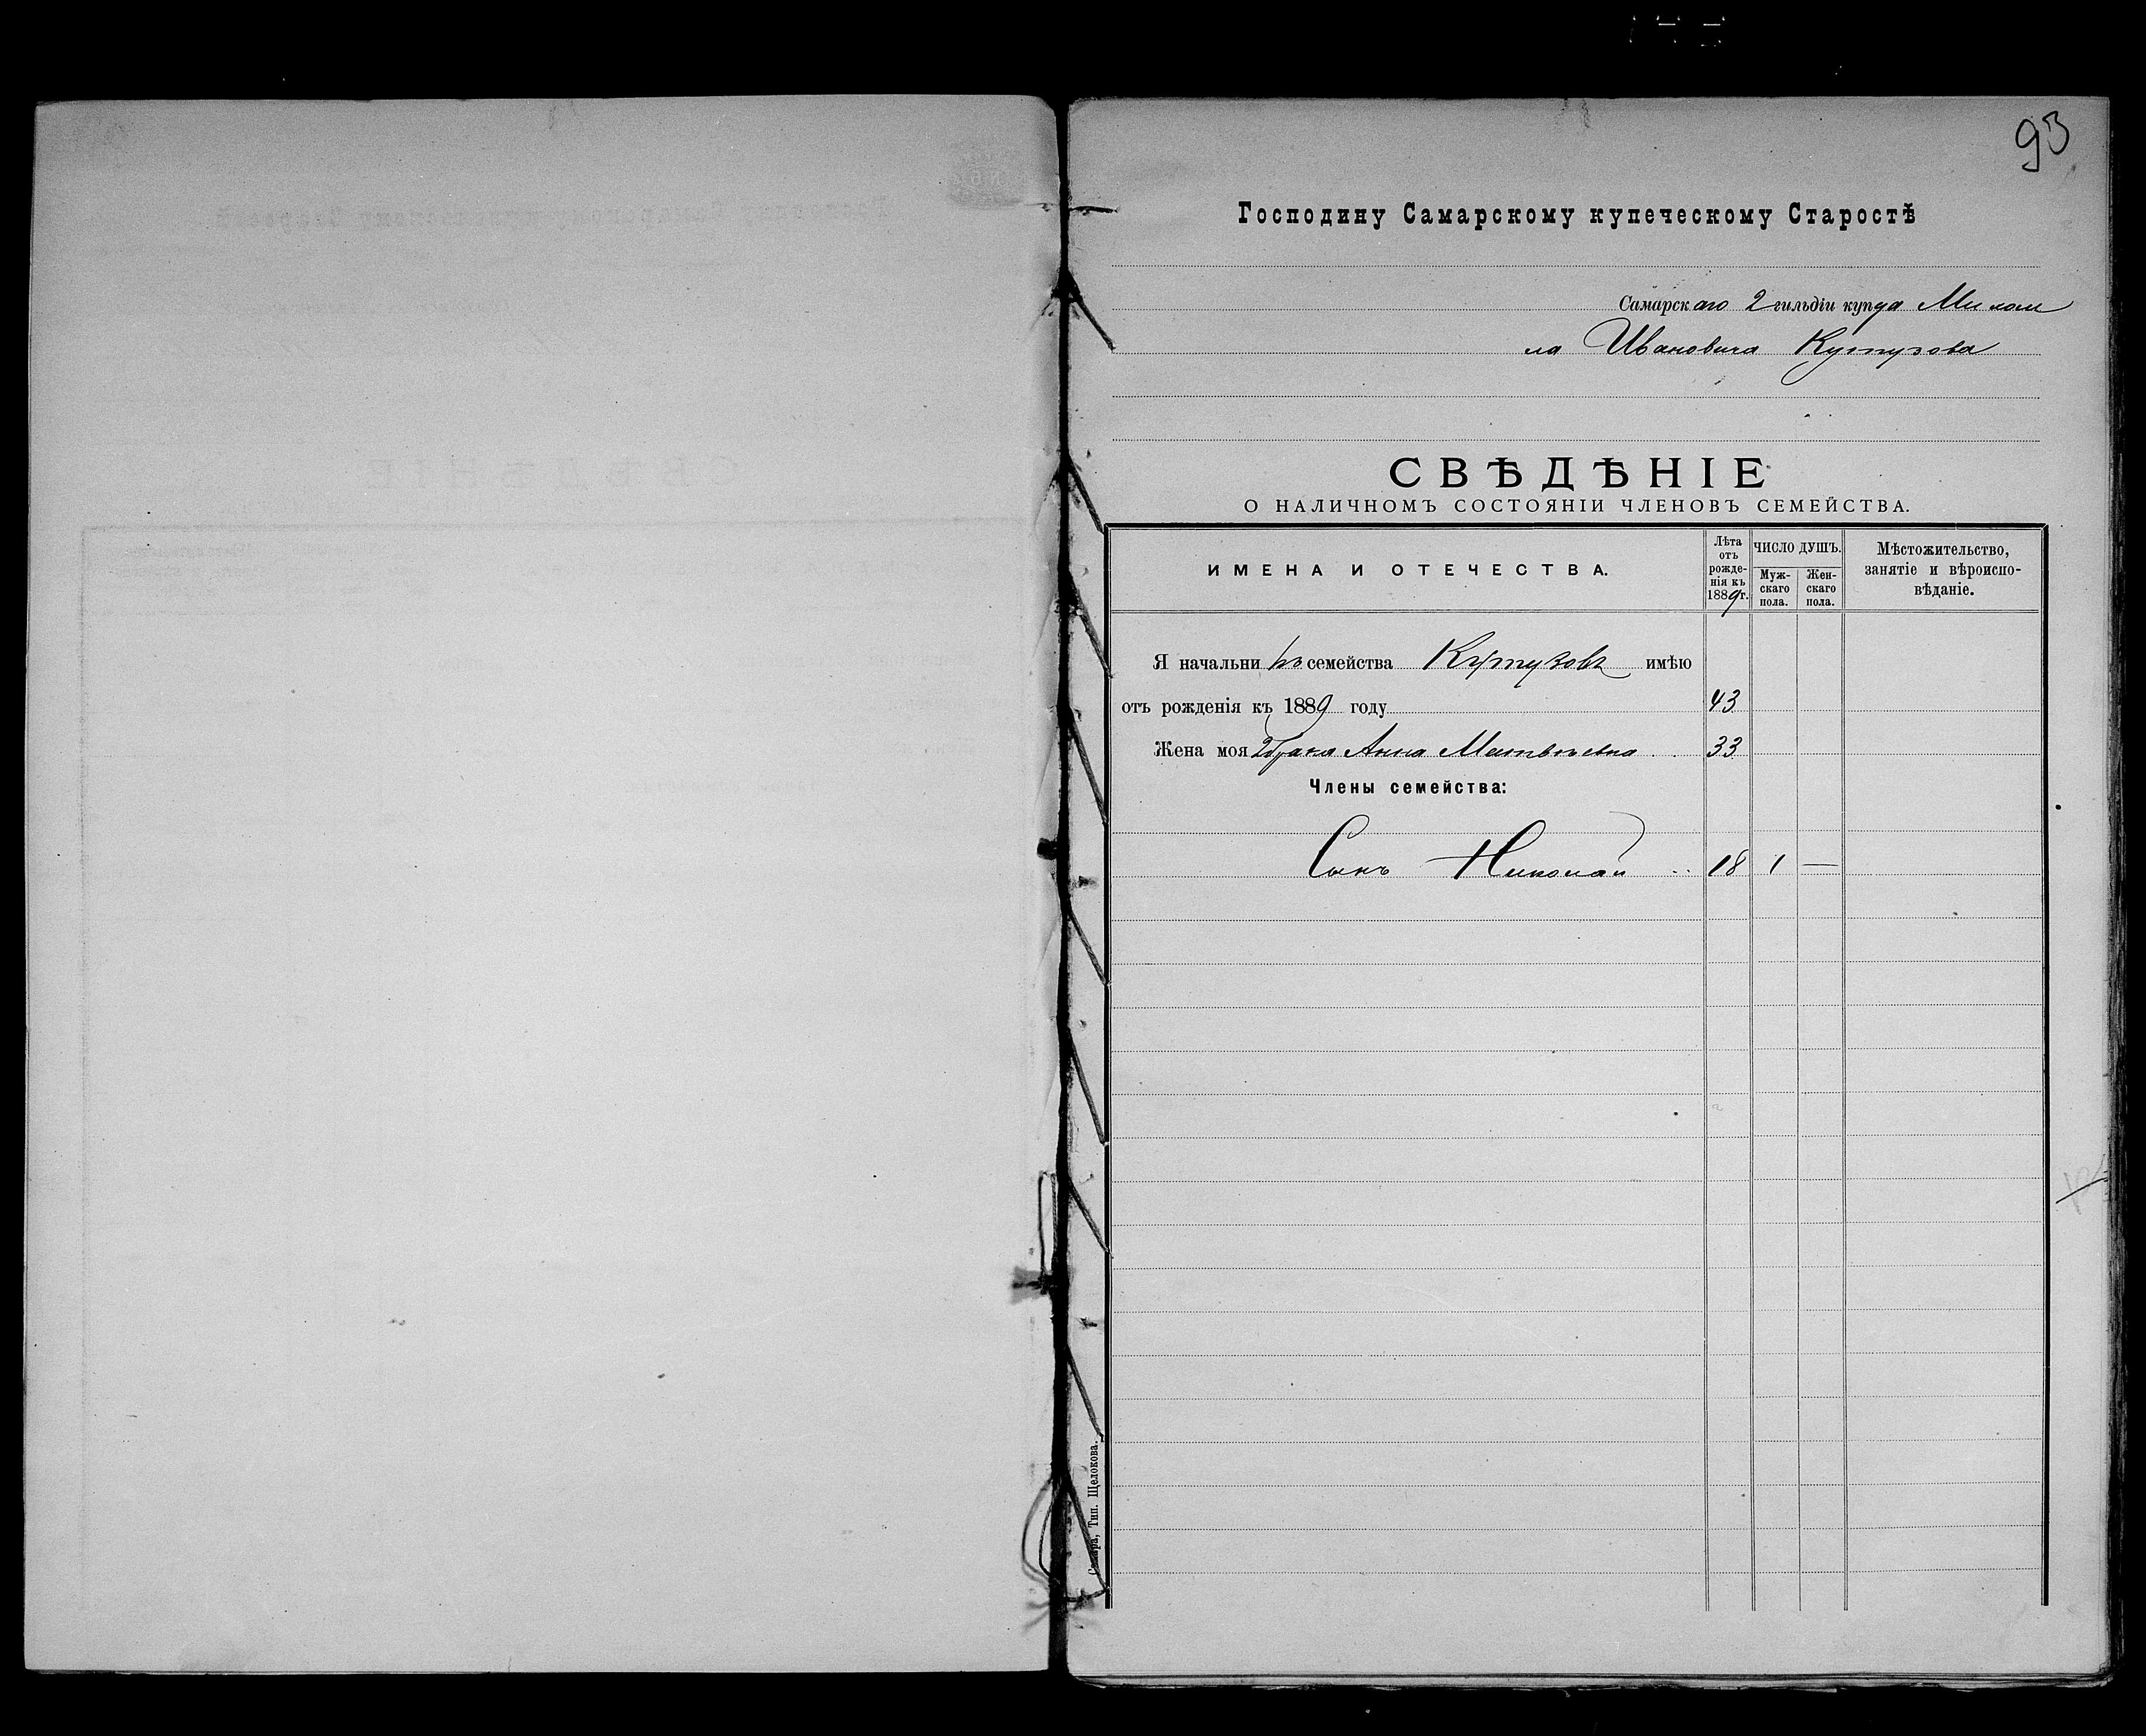 93
Господину Самарскому купеческому Старостѣ
Самарскаго 2 гильдіи купца Михаи
ла Ивановича Кутузова
СВѢДѢНІЕ
О НАЛИЧНОМЪ СОСТОЯНІИ ЧЛЕНОВЪ СЕМЕЙСТВА.
ИМЕНА И ОТЕЧЕСТВА.
Лѣта
отъ
рожде-
нія къ
1889 г.
ЧИСЛО ДУШЪ.
Муж-
скаго
пола.
Жен-
скаго
пола.
Мѣстожительство,
занятіе и вѣроиспо-
вѣданіе.
Я начальникъ семейства Кутузовъ имѣю
отъ рожденія къ 1889 году 43
Жена моя 2 брака Анна Матвѣевна 33
Члены семейства:
Сынъ Николай 18 1 —
Самара, Тип. Щелокова.